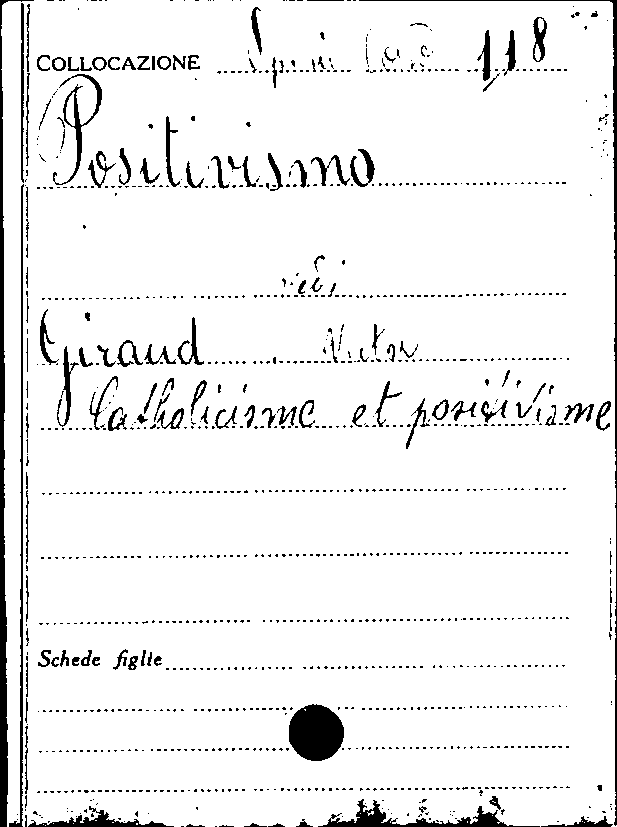 COLLOCAZIONE 118
Positivismo
vedi
Giraud Victor
Catholicisme et positivisme
Schede figlie